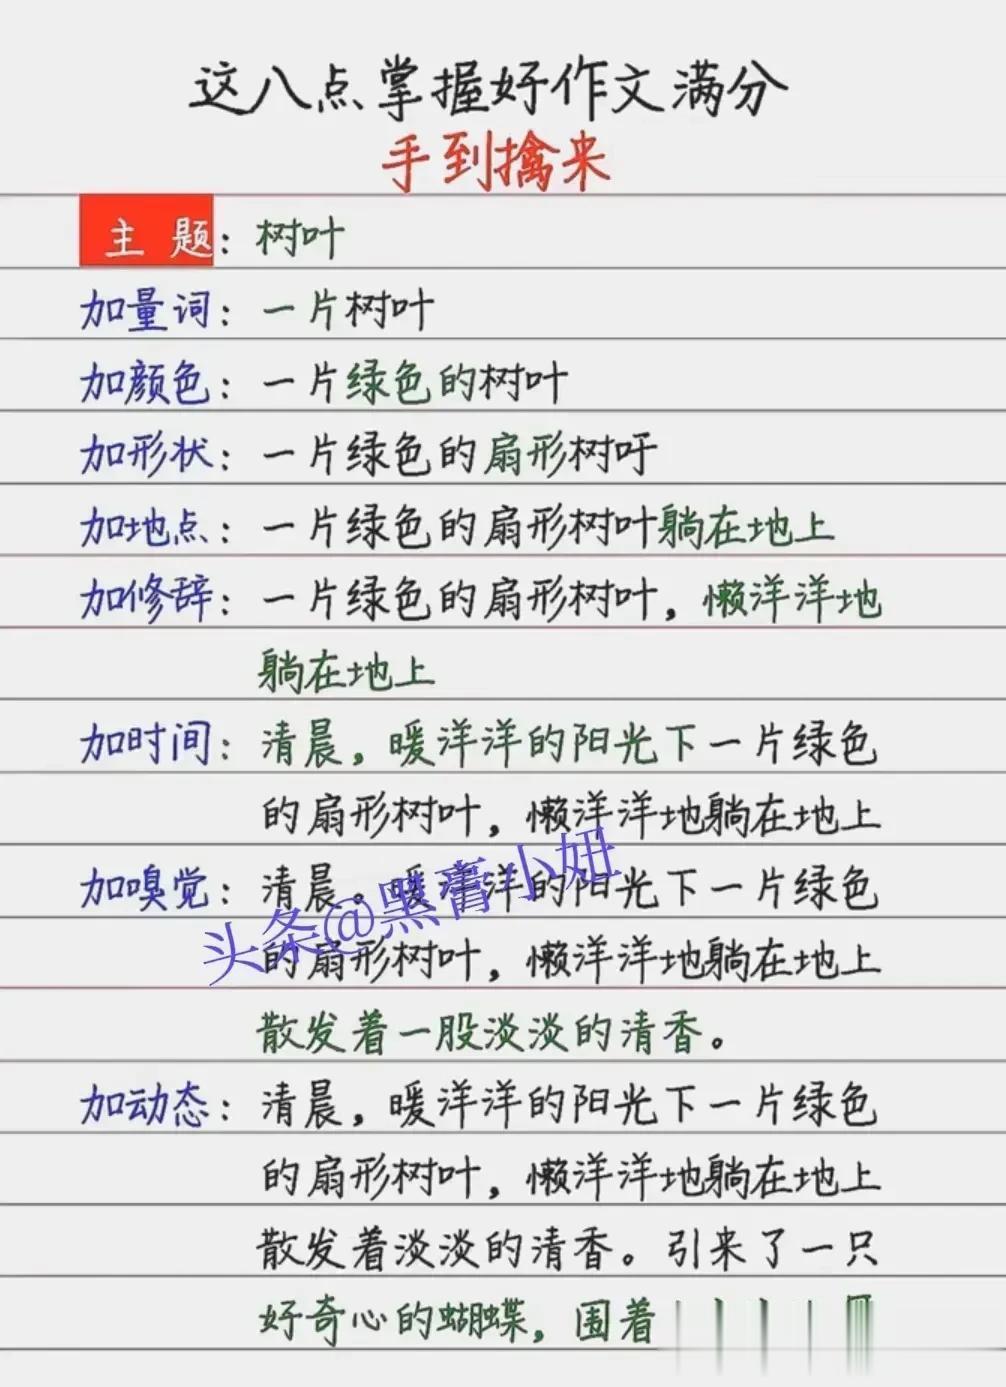 这八点掌握好作文满分
手到擒来
主 题：树叶
加量词：一片树叶
加颜色：一片绿色的树叶
加形状：一片绿色的扇形树吁
加地点：一片绿色的扇形树叶躺在地上
加修辞：一片绿色的扇形树叶，懒洋洋地
躺在地上
加时间：清晨，暖洋洋的阳光下一片绿色
的扇形树叶，懒洋洋地躺在地上
加嗅觉：清晨。暖洋洋的阳光下一片绿色
头条@黑膏小妞
的扇形树叶，懒洋洋地躺在地上
散发着一股淡淡的清香。
加动态：清晨，暖洋洋的阳光下一片绿色
的扇形树叶，懒洋洋地躺在地上
散发着淡淡的清香。引来了一只
好奇心的蝴蝶，围着